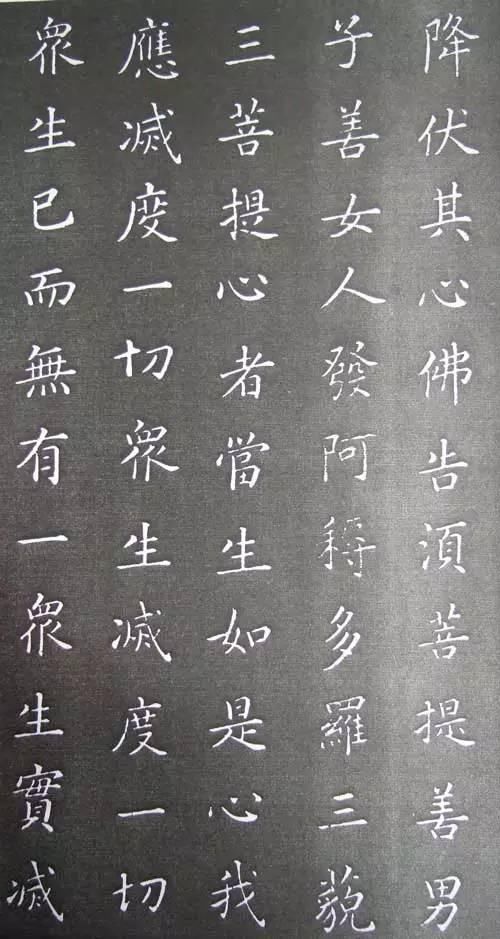 降伏其心佛告須菩提善男
子善女人發阿耨多羅三藐
三菩提心者當生如是心我
應滅度一切眾生滅度一切
眾生已而無有一眾生實滅